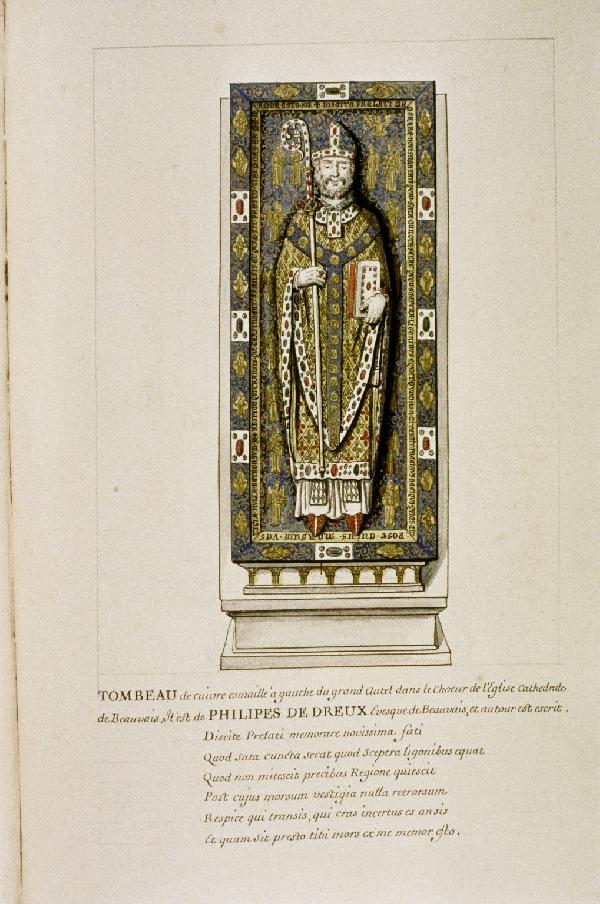 TOMBEAU de cuivre esmaillé à gauche du grand Autel dans le Choeur de l'Eglise Cathedrale
de Beauvais, Il est de PHILIPES DE DREUX Evesque de Beauvais, et autour est escrit.
Discite Prelati memorare novissima fati
Quod sata cuncta secat quod Sceptra ligonibus equat
Quod non mitescit precibus Regione quiescit
Post cujus morsum vestigia nulla retrorsum
Respice qui transis, qui cras incertus es an sis
Et quam sit presto tibi mors ex me memor esto.